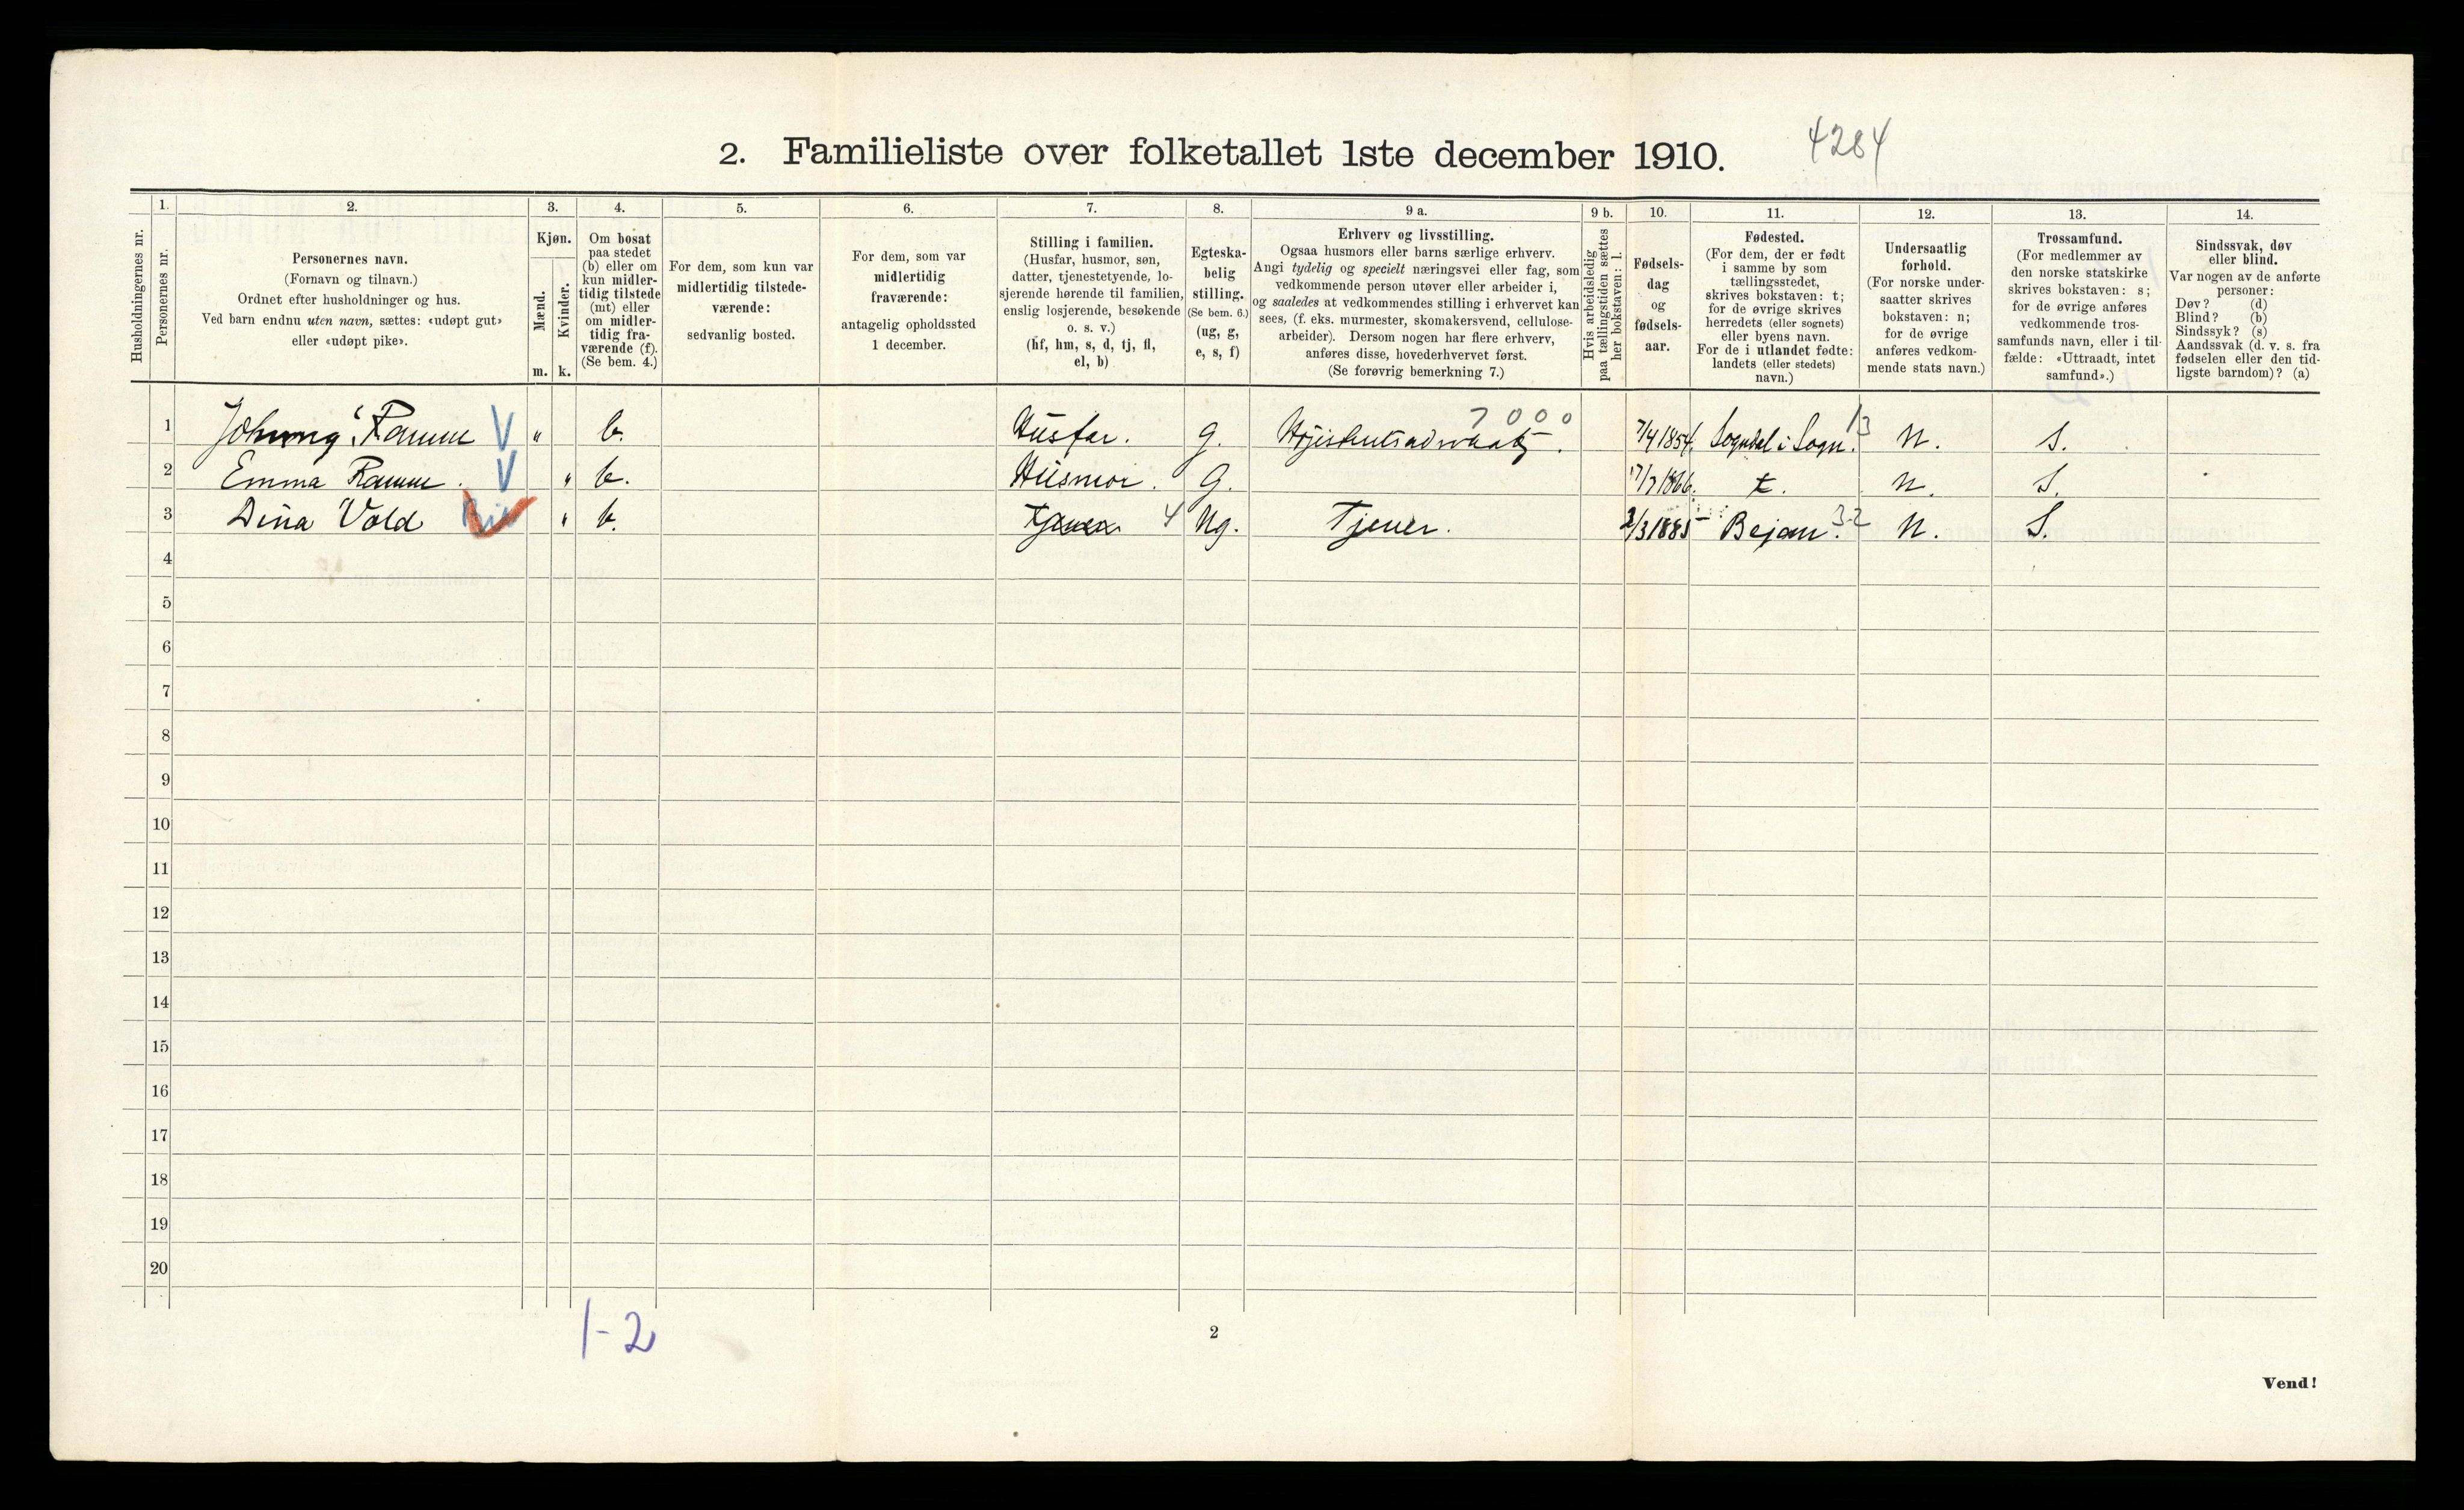 2. Familieliste over folketallet 1ste december 1910. 4284
Husholdningernes nr.
1. Personernes nr.
2. Personernes navn.
(Fornavn og tilnavn.)
Ordnet efter husholdninger og hus.
Ved barn endnu uten navn, sættes: «udøpt gut»
eller «udøpt pike».
3. Kjøn.
Mænd. m.
Kvinder. k.
4. Om bosat
paa stedet
(b) eller om
kun midler-
tidig tilstede
(mt) eller
om midler-
tidig fra-
værende (f).
(Se bem. 4.)
5. For dem, som kun var
midlertidig tilstede-
værende:
sedvanlig bosted.
6. For dem, som var
midlertidig
fraværende:
antagelig opholdssted
1 december.
7. Stilling i familien.
(Husfar, husmor, søn,
datter, tjenestetyende, lo-
sjerende hørende til familien,
enslig losjerende, besøkende
o. s. v.)
(hf, hm, s, d, tj, fl,
el, b)
8. Egteska-
belig
stilling.
(Se bem. 6.)
(ug, g,
e, s, f)
9 a. Erhverv og livsstilling.
Ogsaa husmors eller barns særlige erhverv.
Angi tydelig og specielt næringsvei eller fag, som
vedkommende person utøver eller arbeider i,
og saaledes at vedkommendes stilling i erhvervet kan
sees, (f. eks. murmester, skomakersvend, cellulose-
arbeider). Dersom nogen har flere erhverv,
anføres disse, hovederhvervet først.
(Se forøvrig bemerkning 7.)
9 b. Hvis arbeidsledig
paa tællingstiden sættes
her bokstaven: l.
10. Fødsels-
dag
og
fødsels-
aar.
11. Fødested.
(For dem, der er født
i samme by som
tællingsstedet,
skrives bokstaven: t;
for de øvrige skrives
herredets (eller sognets)
eller byens navn.
For de i utlandet fødte:
landets (eller stedets)
navn.)
12. Undersaatlig
forhold.
(For norske under-
saatter skrives
bokstaven: n;
for de øvrige
anføres vedkom-
mende stats navn.)
13. Trossamfund.
(For medlemmer av
den norske statskirke
skrives bokstaven: s;
for de øvrige anføres
vedkommende tros-
samfunds navn, eller i til-
fælde: «Uttraadt, intet
samfund».)
14. Sindssvak, døv
eller blind.
Var nogen av de anførte
personer:
Døv? (d)
Blind? (b)
Sindssyk? (s)
Aandssvak (d. v. s. fra
fødselen eller den tid-
ligste barndom)? (a)
1 Ramm V " b. Husfar. g. 7000 7/4 1854. Sogndal i Sogn. 13 N. S.
2 Emma Ramm. V " b. Husmor. G. 1866. t. N. S.
3 Dina Vold " b. Tjener 4 Ug. Tjener. 2/3 1885 Bejan. 32 N. S.
4
5
6
7
8
9
10
11
12
13
14
15
16
17
18
19
20
1-2
2
Vend!